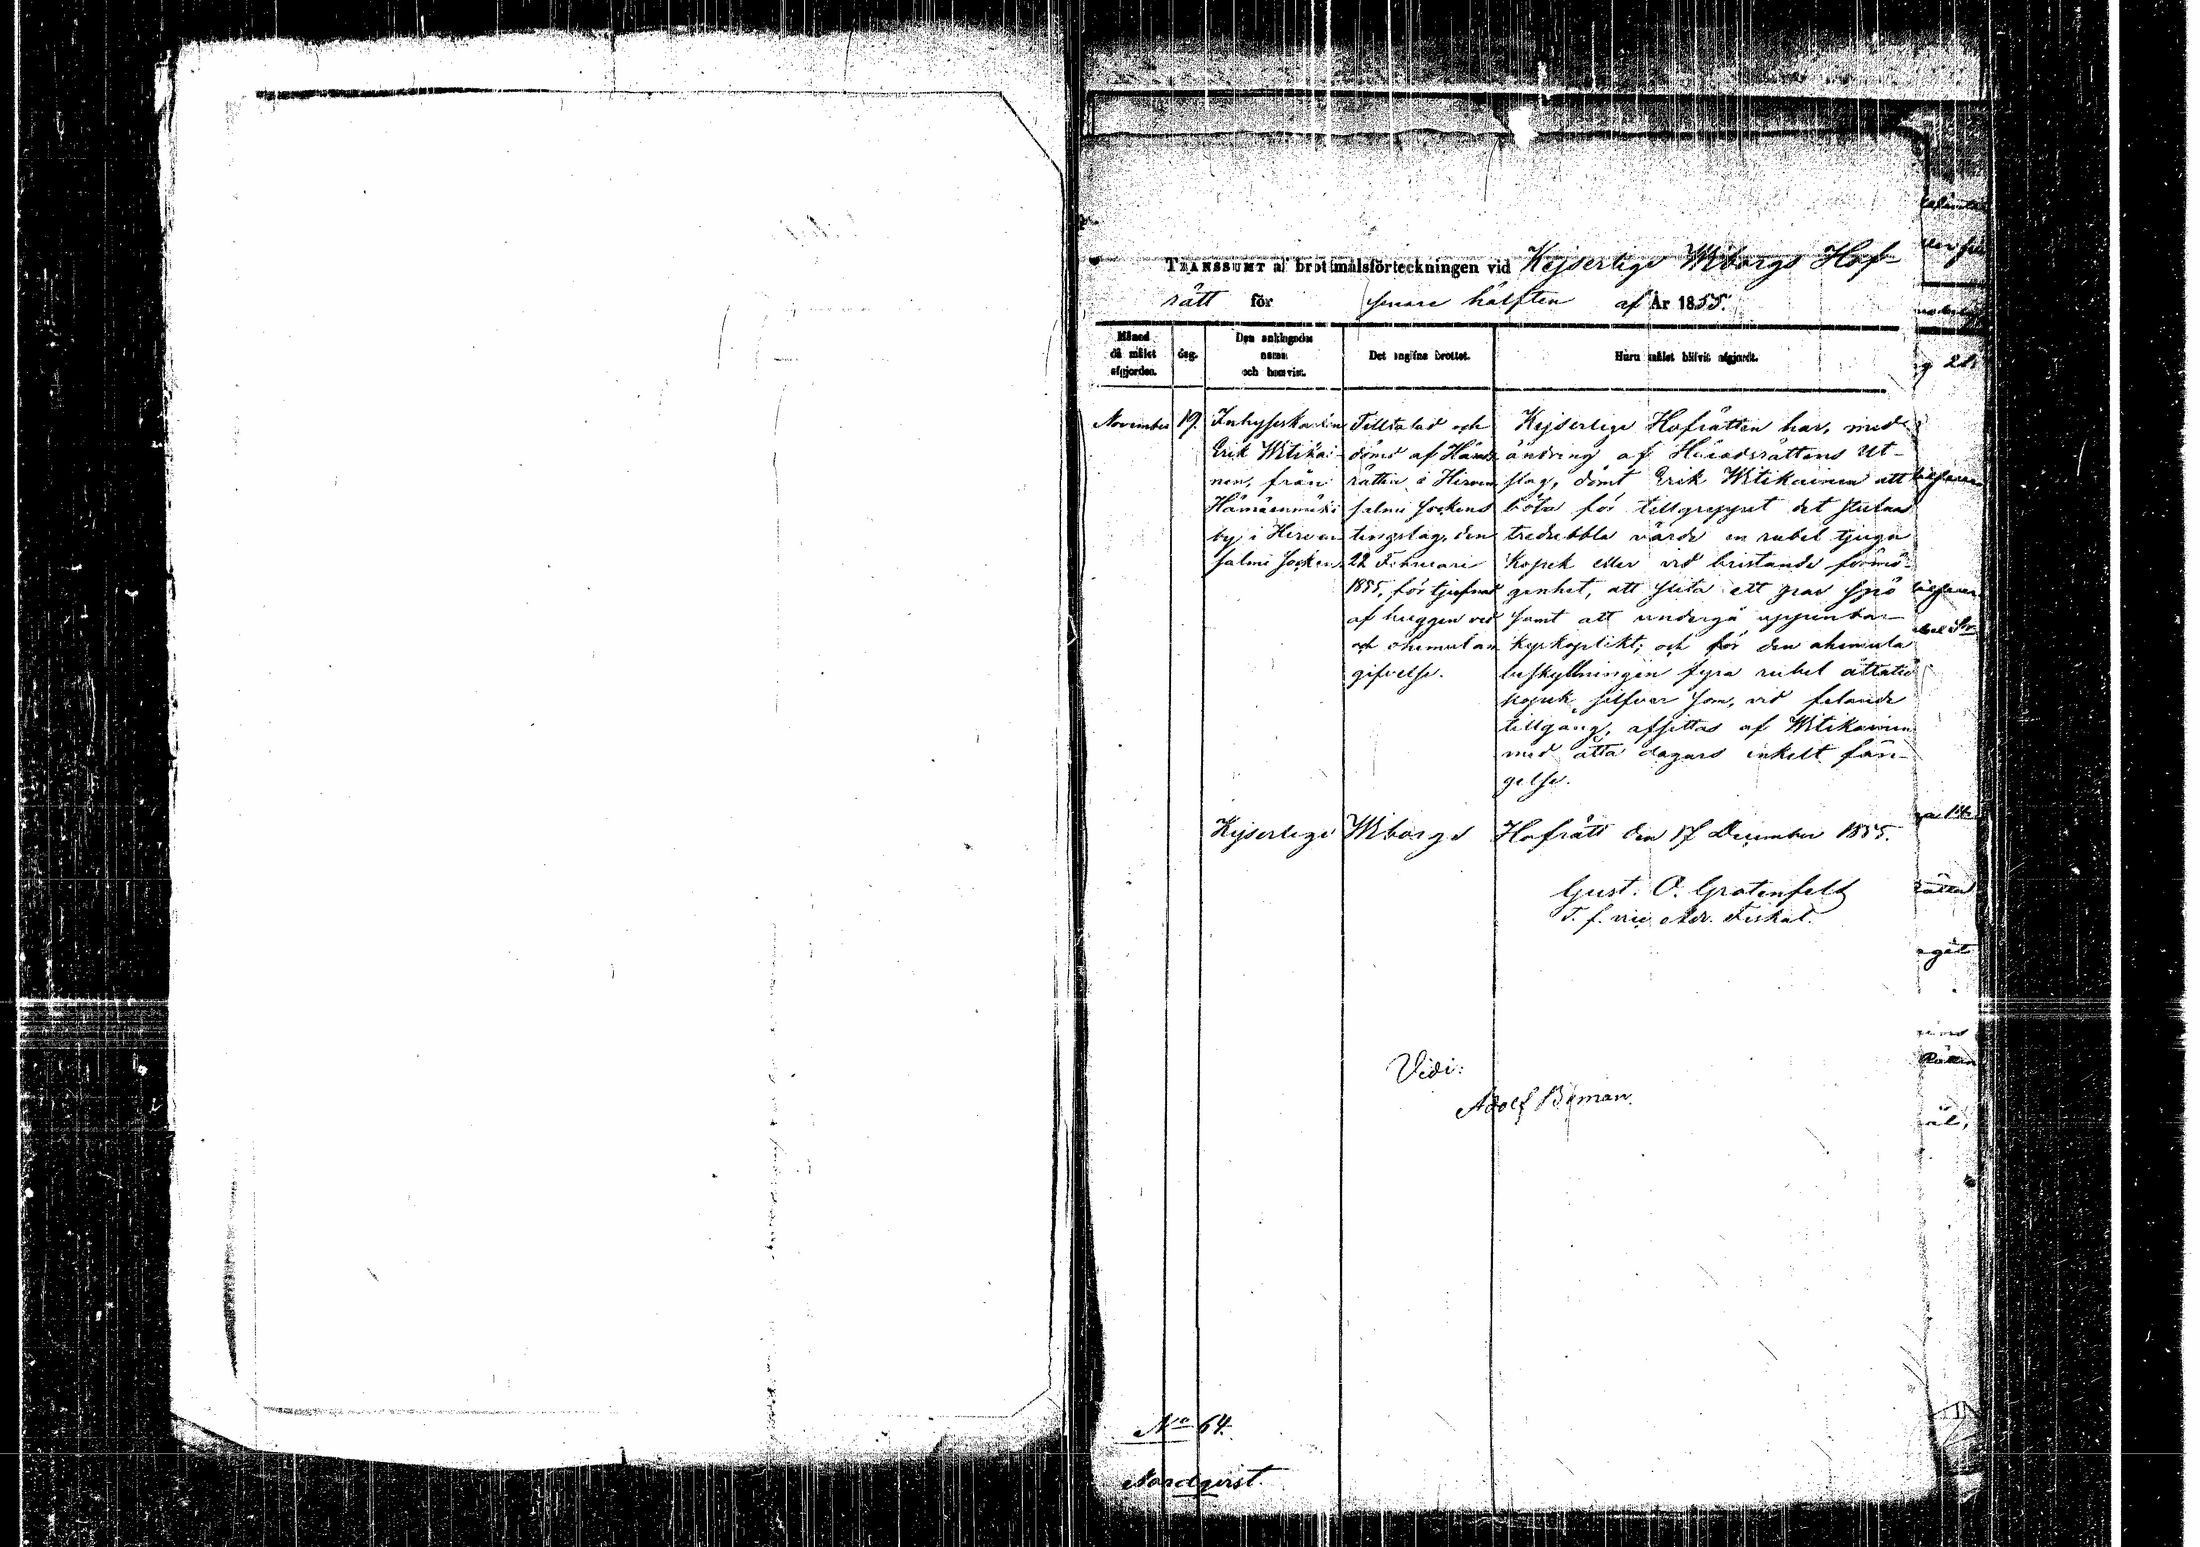 TRANSSUMT af brottmålsförteckningen vid Kejserlige Wiborgs Hof-
rätt för senare hälften af År 1855.
Månad
då målet
afgjordes.
dag.
Den anklagades
namn
och hemvist.
Det angifna brottet.
Huru målet blifvit afgjordt.
November
19.
Inhysheskarlen
Erik Witikai-
nen, från
Hämäenmäki
by i Hirven
salmi Socken
Tilltalad och
dömd af Härads
rätten i Hirven
salmi Sockens
tingslag, den
22 Februari
1855, för tjufnad
af huggen ved
och ohemul an
gifvelse.
Kejserlige Hofrätten har, med
ändring af Häradsrättens Ut-
slag, dömt Erik Witikainen att
böta för tillgreppet det stulnas
tredubbla värde en rubel tjugu
kopek eller vid bristande förmö-
genhet, att slita ett par spö
samt att undergå uppenbar
kyrkoplikt; och för den ohemula
beskyllningen fyra rubel åttatio
kopek silfver som, vid felande
tillgång, afsittas af Witikainen
med åtta dagars enkelt fän-
gelse.
Kejserlige Wiborgs Hofrätt den 17 December 1855.
Gust. O. Grotenfelt
T. f. vice Adv. Fiskal.
Vidi:
Adolf Byman.
No 64.
Nordqvist.